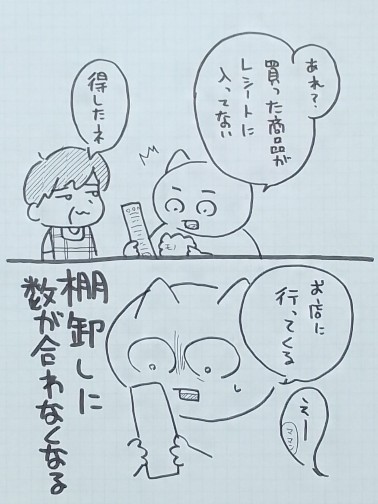 あれ?
買った商品が
レシートに
入ってない
得したネ
モノ
お店に
行ってくる
えー
ママン
棚卸しに
数が合わなくなる